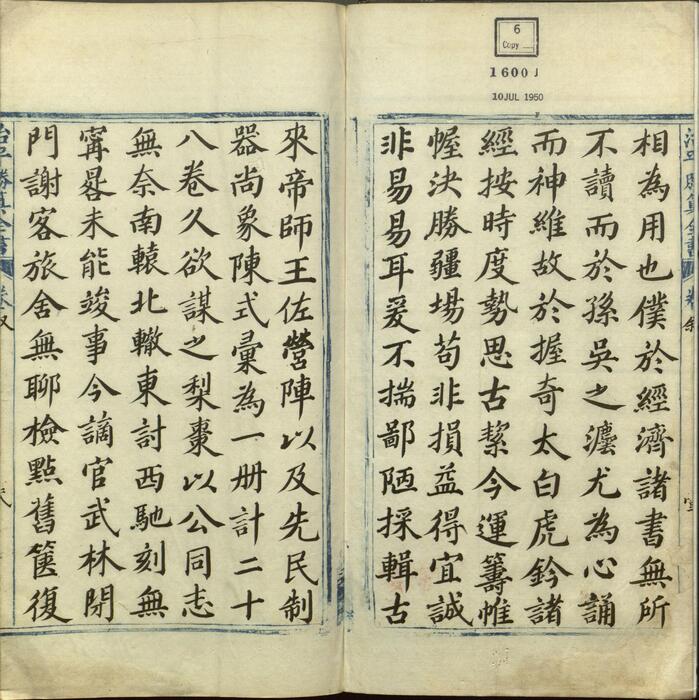 6
Copy
1600 J
10 JUL 1950
相為用也僕於經濟諸書無所
不讀而於孫吳之灋尤為心誦
而神維故於握奇太白虎鈐諸
經按時度勢思古絜今運籌帷
幄決勝疆場苟非損益得宜誠
非易易耳爰不揣鄙陋採輯古
來帝師王佐營陣以及先民制
器尚象陳式彙為一册計二十
八卷久欲謀之梨棗以公同志
無奈南轅北轍東討西馳刻無
寧晷未能竣事今謫官武林閉
門謝客旅舍無聊檢點舊篋復